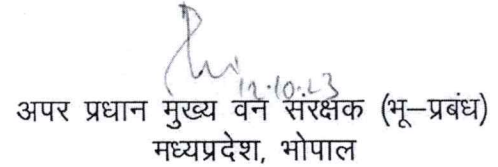 12.10.23
अपर प्रधान मुख्य वन संरक्षक (भू–प्रबंध)
मध्यप्रदेश, भोपाल